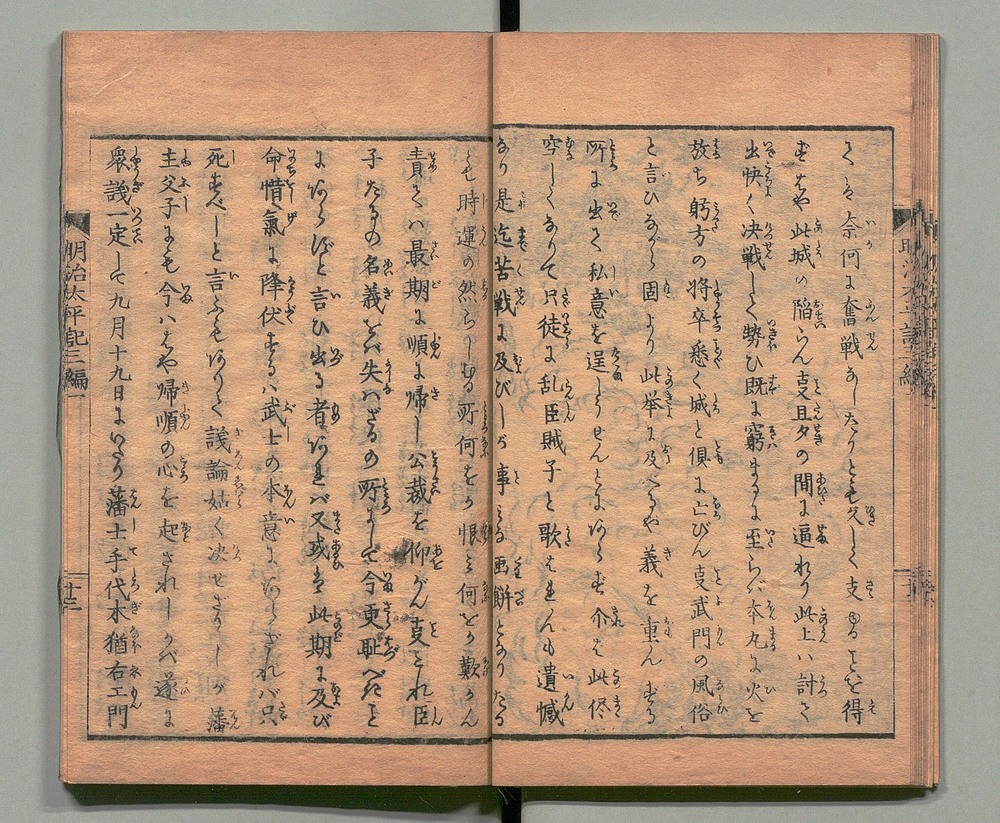 てハ奈何に奮戦なしたりとも久しく支ゆることを得
ずはや此城の陥らん事旦夕の間に逼れり此上ハ討て
出快く决戦して勢ひ既に窮まるに至らバ本丸に火を
放ち躬方の将卒悉く城と倶に亡びん事武門の風俗
と言ひながら固より此挙に及べるや義を重んずる
所に出て私意を逞しうせんとにあらず介を此侭
空しくなりて只徒に乱臣賊子と歌はれんも遺憾
なり是迄苦戦に及びしが事みな画餅となりたる
とも時運の然らしむる所何をか恨ミ何をか歎かん
責てハ最期に順に帰し公裁を仰がん事これ臣
子たるの名義をバ失ハざるの所にして今更耻べきこと
にあらずと言ひ出る者あれバ又或は此期に及び
命惜気に降伏するハ武士の本意にあらざれバ只
死すべしと言ふもありて議論姑く决せざりしが藩
主父子にも今ハはや帰順の心を起されしかバ遂に
衆議一定して九月十九日にいたり藩士手代木猶右エ門
明治太平記三編一
十三